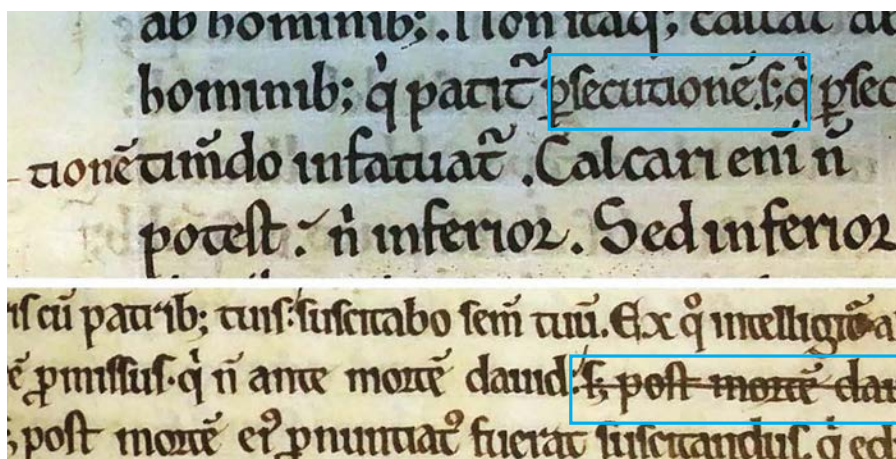 ab hominib;. Non itaq; calcat᷑ ab
hominib; qͥ patit᷑ ꝑsecutionē. s; qͥ ꝑsec
tionē tim̄do infatuat᷑. Calcari eni̅ n̄
potest. n̄ inferior. Sed inferior
cū patrib; tuis. suscitabo sem̄ tuū. Ex qͦ intelligit᷑
ē ꝓmissus. qͥ n̄ ante mortē dauid. s; post mortē dau
post mortē eiꝰ ꝓnuntiatꝰ fuerat suscitandus. qͥ ed